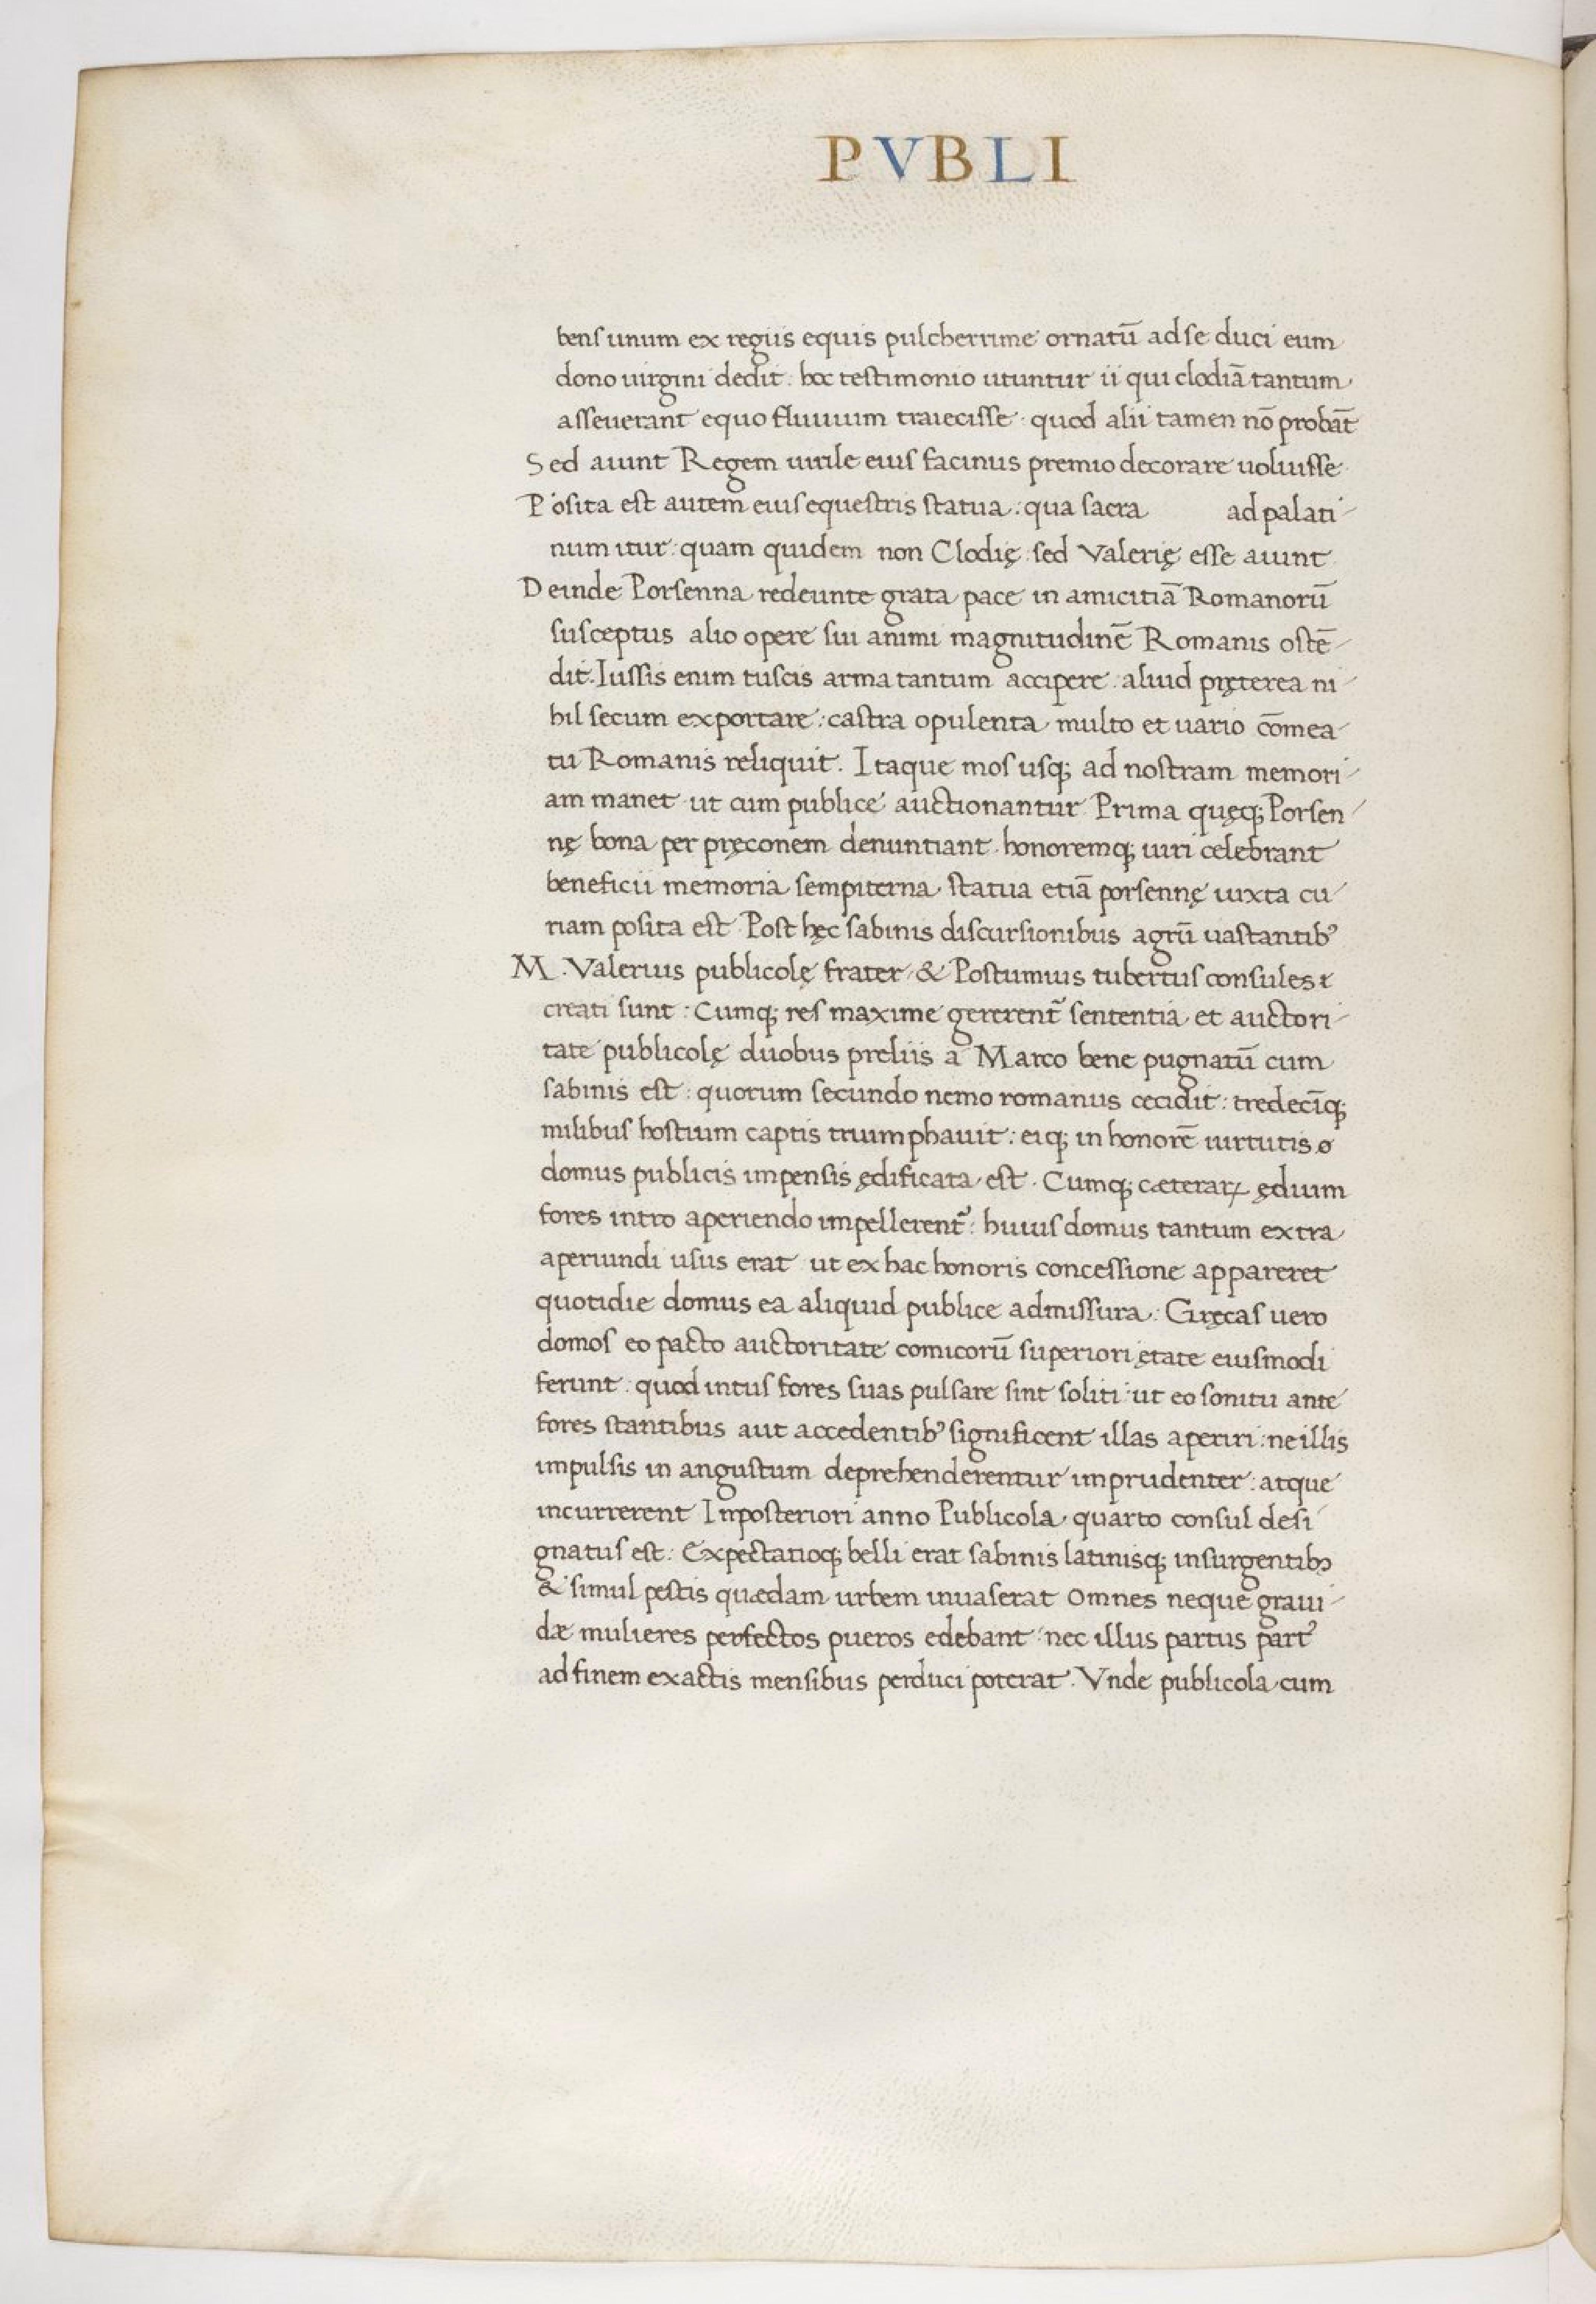 PVBLI
bens unum ex regiis equis pulcherrime ornatū ad se duci eum
dono uirgini dedit: hoc testimonio utuntur ii qui clodiā tantum
asseuerant equo fluuium traiecisse: quod alii tamen nō probāt
Sed aiunt Regem uirile eius facinus premio decorare uoluisse
Posita est autem eius equestris statua: qua sacra ad palati-
num itur: quam quidem non Clodię: sed Valerię esse aiunt
Deinde Porsenna redeunte grata pace in amicitiā Romanorū
susceptus alio opere sui animi magnitudinē Romanis ostē-
dit. Iussis enim tuscis arma tantum accipere: aliud pręterea ni-
hil secum exportare: castra opulenta multo et uario cōmea-
tu Romanis reliquit. Itaque mos usq; ad nostram memori-
am manet ut cum publice auctionantur Prima quęq; Porsen-
nę bona per pręconem denuntiant. honoremq; uiri celebrant
beneficii memoria sempiterna. statua etiā porsennę iuxta cu-
riam posita est. Post hęc sabinis discursionibus agrū uastantibꝰ
M. Valerius publicolę frater & Postumius tubertus consules
creati sunt: Cumq; res maxime gererent᷑ sententia et auctori-
tate publicolę duobus preliis a Marco bene pugnatū cum
sabinis est: quorum secundo nemo romanus cecidit: tredecīq;
milibus hostium captis triumphauit: eiq; in honorē uirtutis
domus publicis impensis ędificata est. Cumq; cæteraꝝ ędium
fores intro aperiendo impellerent᷑: huius domus tantum extra
aperiundi usus erat ut ex hac honoris concessione appareret
quotidie domus ea aliquid publice admissura. Gręcas uero
domos eo pacto auctoritate comicorū superiori ętate eiusmodi
ferunt: quod intus fores suas pulsare sint soliti: ut eo sonitu ante
fores stantibus aut accedentibꝰ significent illas aperiri: ne illis
impulsis in angustum deprehenderentur imprudenter: atque
incurrerent In posteriori anno Publicola quarto consul desi
gnatus est: Expectatioq; belli erat sabinis latinisq; insurgentibꝰ
& simul pestis quædam urbem inuaserat Omnes neque graui-
dæ mulieres perfectos pueros edebant: nec illus partus part᷑
ad finem exactis mensibus perduci poterat. Vnde publicola cum